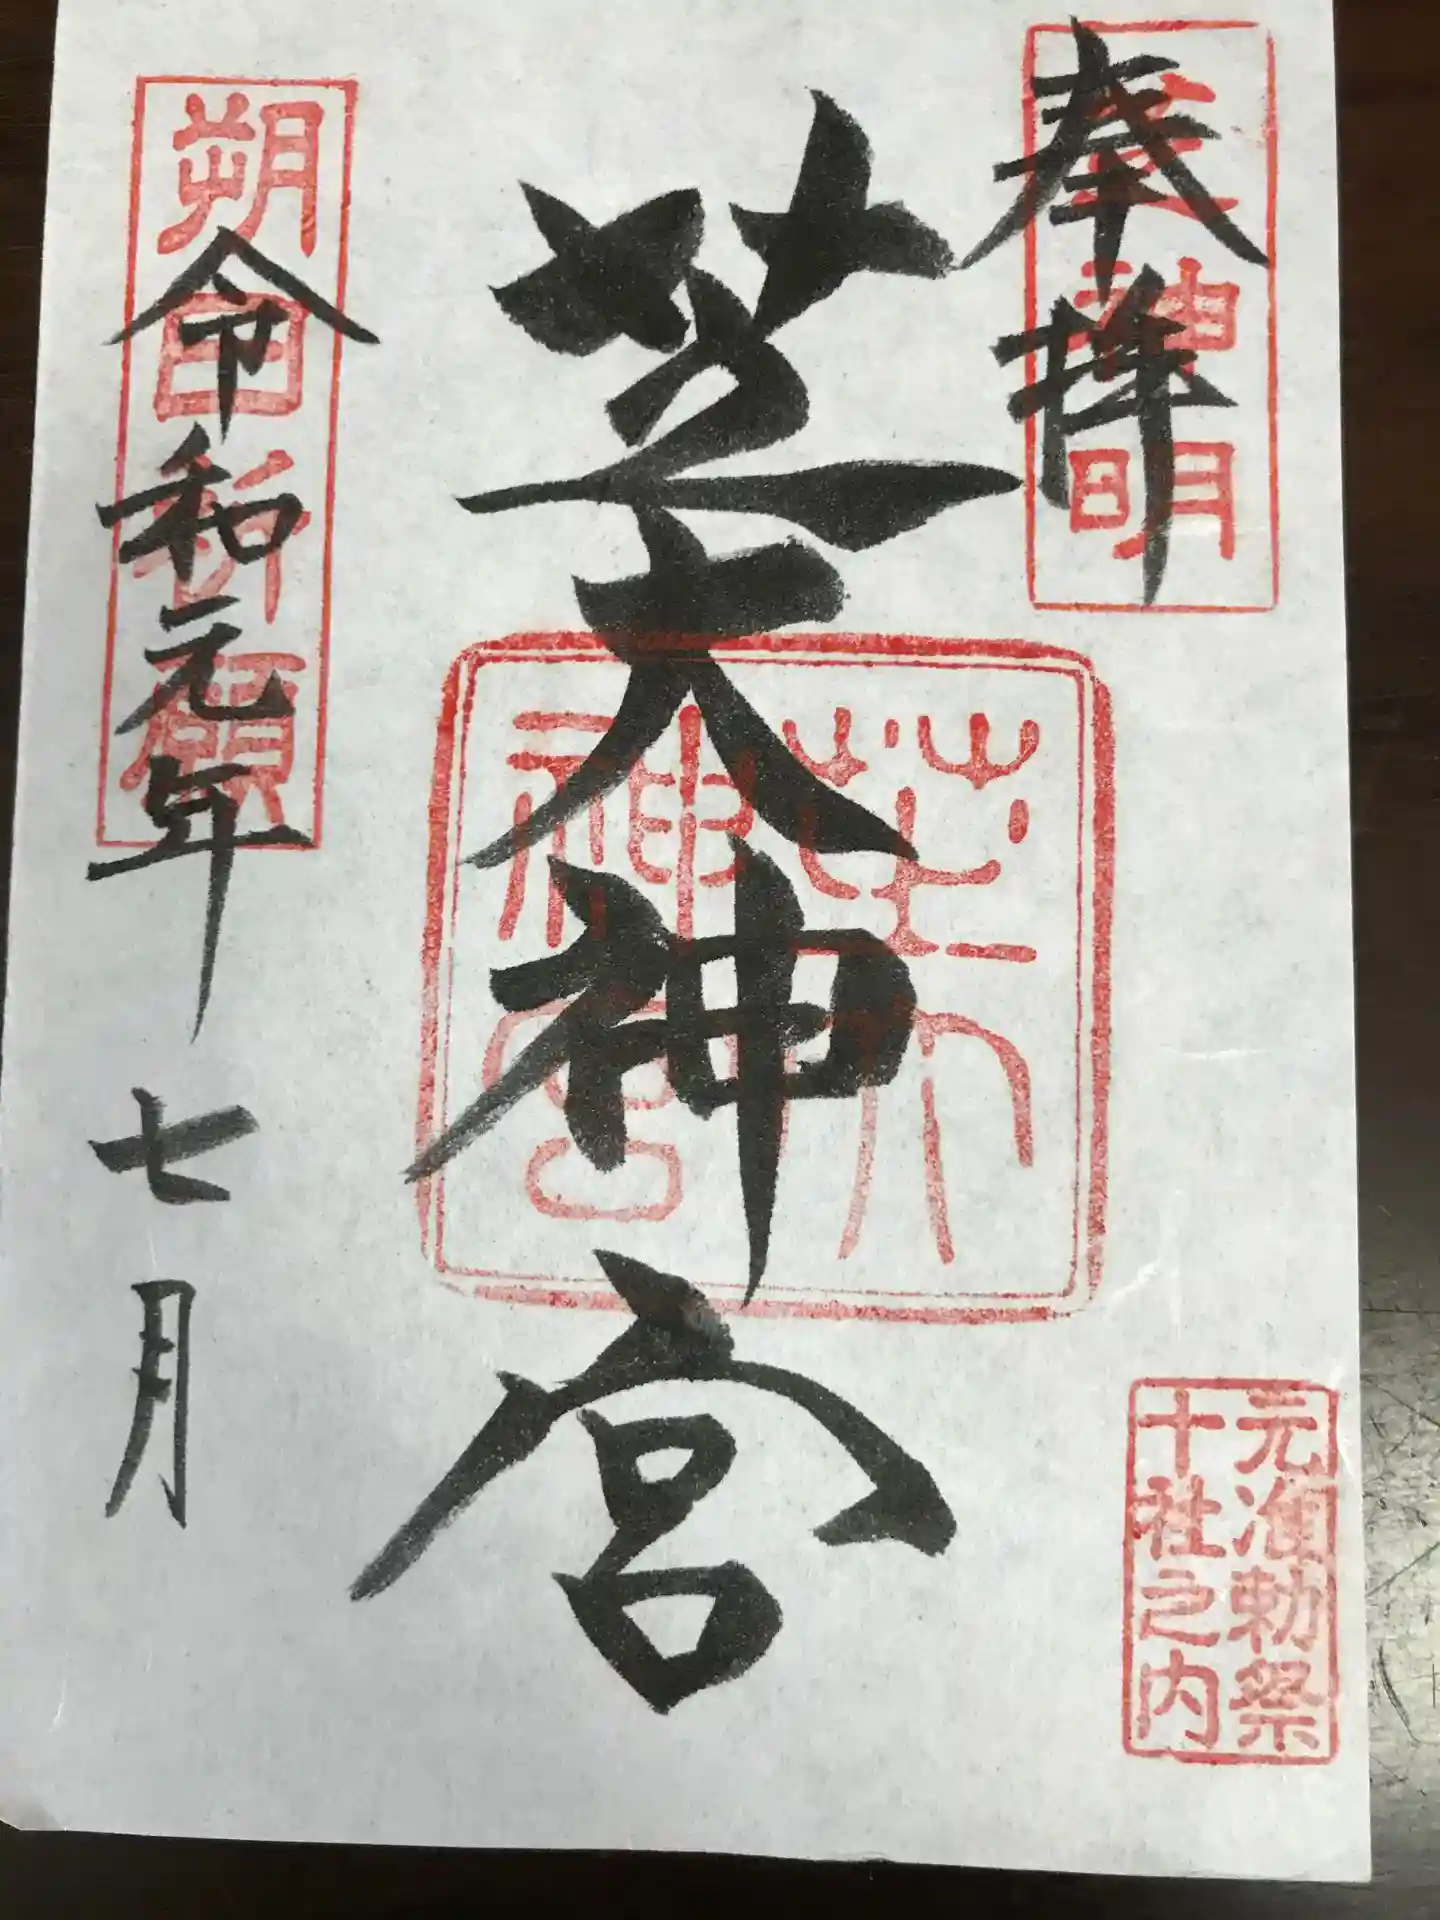 奉拝
芝神明
芝大神宮
芝大神宮
元准勅祭
十社之内
朔日祈願
令和元年 七月